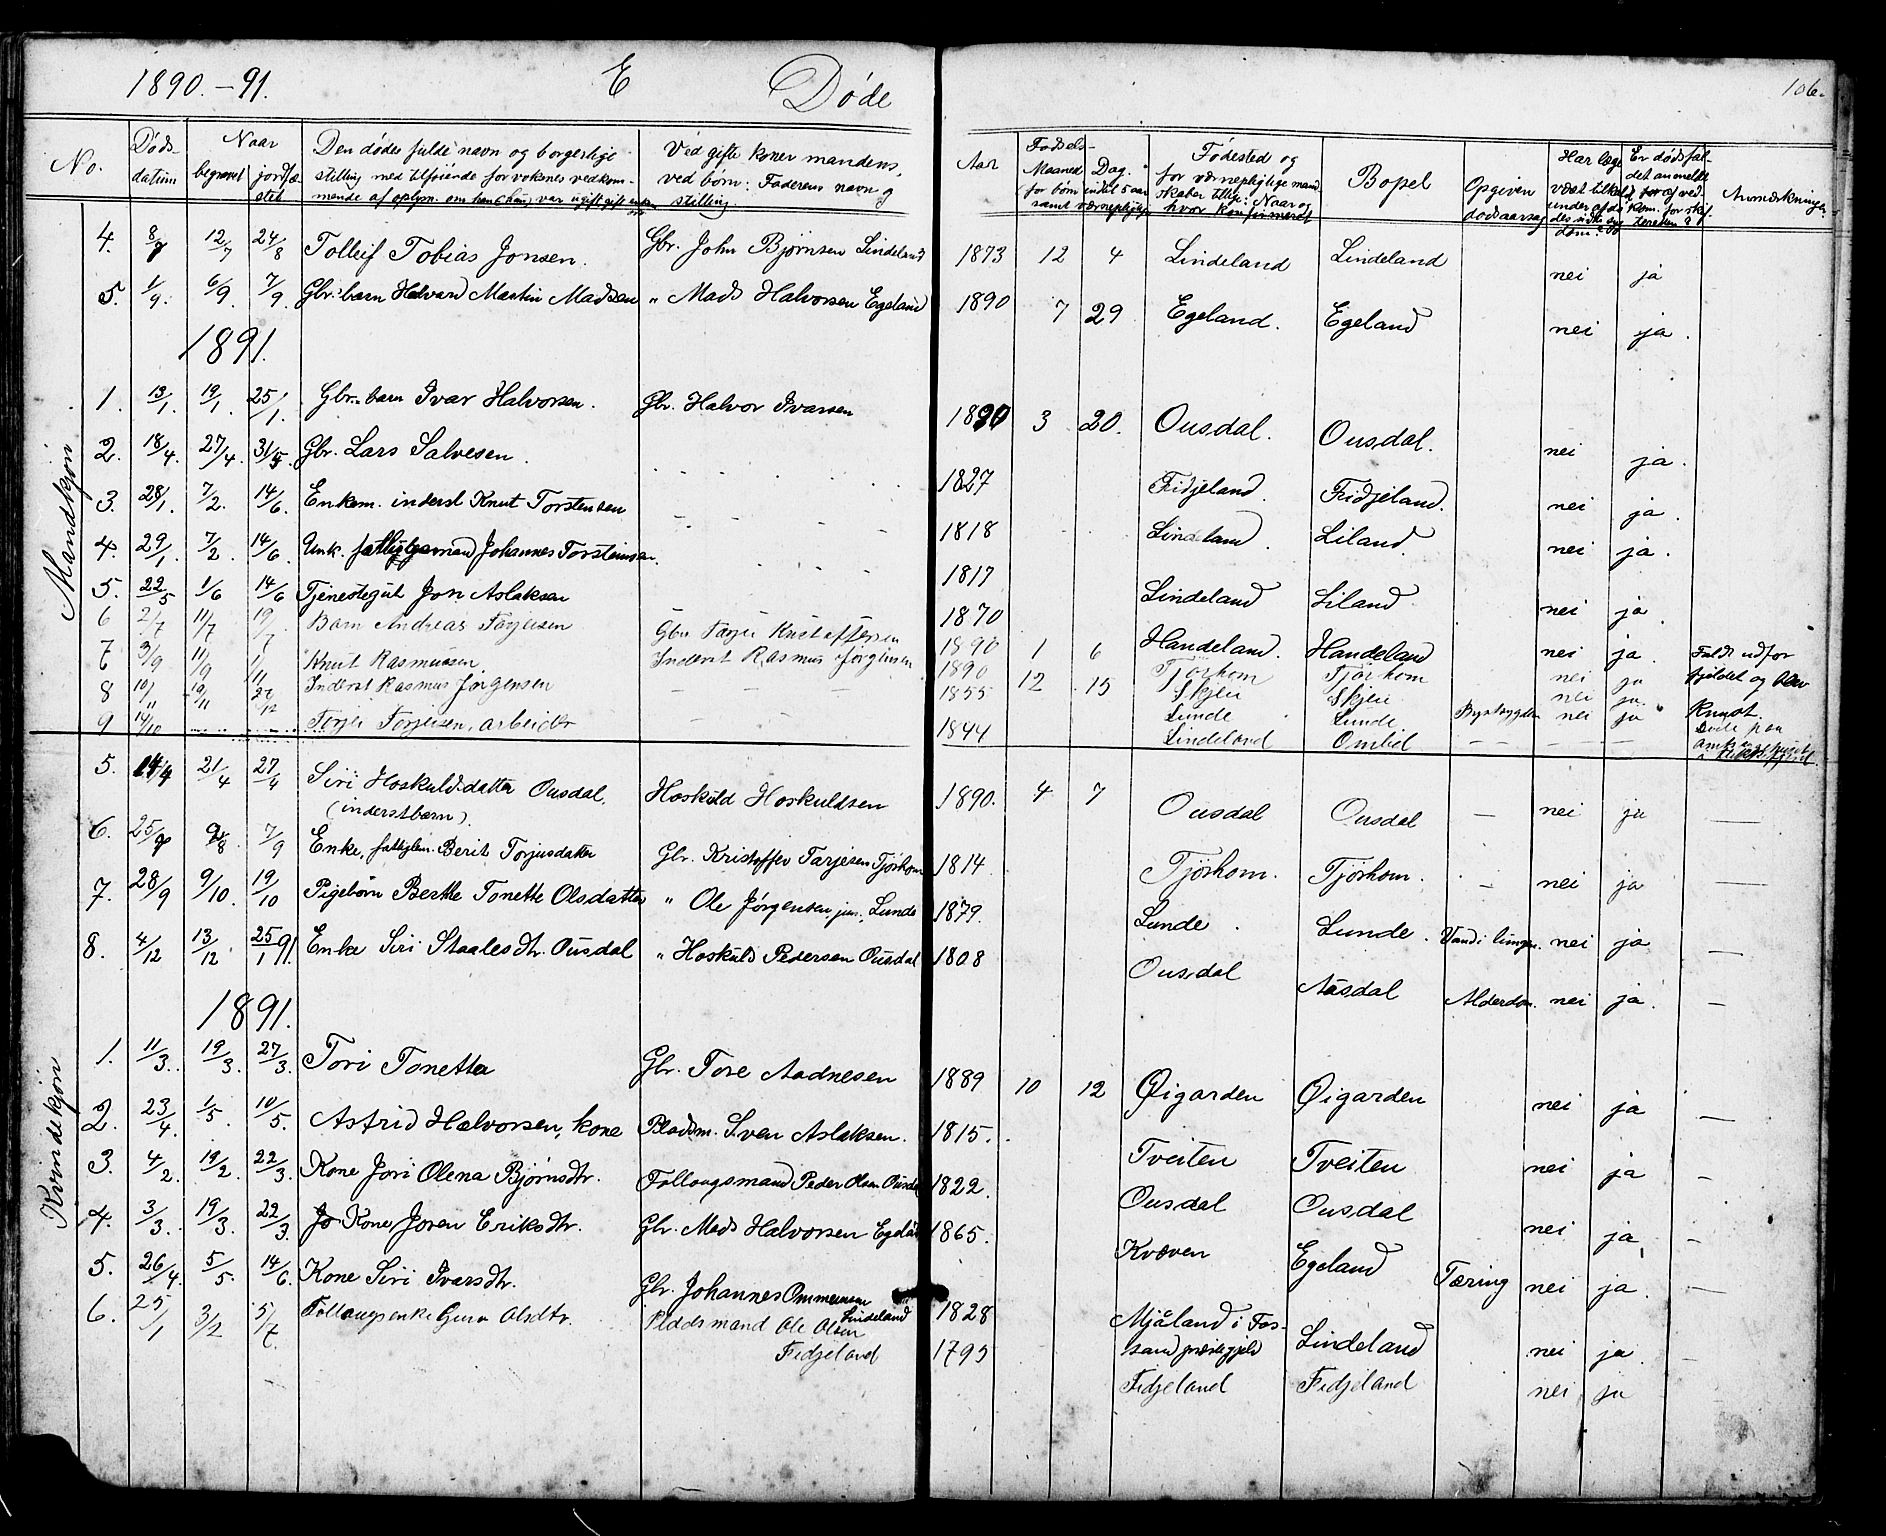 1890.-91. E Døde 106.
No. Døds-datum Naar begravet jordfæstet Den dødes fulde navn og borgerlige stilling med tilføiende for voksnes vedkommende af oplysn. om han (hun) var ugift gift enkem. Ved gifte koner mandens, ved børn: Faderens navn og stilling Aar Fødsels- Maaned Dag. (for børn indtil 5 aar samt værnepligtige) Fødested og for værnepligtige mandskaber tillige: Naar og hvor konfirmeret Bopel Opgiven dødsaarsag Har læge været tilkaldt under afdødes sidste sygdom? Er dødsfaldet anmeldt Anmærkninger
Mandkjøn
4. 8/8 12/7 24/8 Tolleif Tobias Jonsen. Gbr. John Bjørnsen Lindeland 1873 12 4 Lindeland Lindeland nei ja
5. 1/9. 6/9. 7/9. Gbr. barn Halvard Martin Madsen " Mads Halvorsen Egeland 1890 7 29 Egeland. Egeland nei ja.
1891.
1. 13/1. 19/1. 25/1. Gbr. barn Ivar Halvorsen. Gbr. Halvor Ivarsen 1890 3 20. Ousdal. Ousdal. nei ja.
2. 18/4. 27/4. 31/5. Gbr. Lars Salvesen. 1827 Fidjeland. Fidjeland. nei ja.
3. 28/1. 7/2. 14/6. Enkem. inderst Knut Torstensen 1818 Lindeland. Liland. nei ja.
4. 29/1. 7/2. 14/6. Unk. fattiglgsmand Johannes Torsteinsen. 1817 Lindeland Liland nei ja.
5. 22/5 1/6 14/6 Tjenestegut Jon Aslaksen 1870 Handeland. Handeland nei ja.
6 2/7 11/7 19/7 Barn Andreas Tarjeisen Gbr Tarjei Kristoffersen 1890 1 6 Tjørhom Tjørhom nei ja
7 3/9 11/9 1/11 Knut Rasmussen Inderst Rasmus Jørgensen 1890 12 15 Skjeii Skjeii nei ja. Faldt udfor
8 10/11 19/11 27/12 Inderst Rasmus Jørgensen — — — 1855 Lunde Lunde Brystsygdom nei ja fjeldet og blev
9 14/10 Torjei Torjeisen, arbeider — — 1844 Lindeland Omlid — — — — knust.
Døde paa
Kvindekjøn
5. 14/4 21/4 27/4 Siri Hoskuldsdatter Ousdal. Hoskuld Hoskuldsen 1890. 4 7 Ousdal Ousdal — nei ja —
(inderstbarn).
6. 25/8 9/8. 7/9 Enke, fattiglem. Berit Torjusdatter Gbr. Kristoffer Tarjesen Tjørhom 1814 Tjørhom. Tjørhom. — nei ja —
7. 28/9 9/10. 19/10 Pigebørn Berthe Tonette Olsdatter " Ole Jørgensen jun. Lunde 1879. Lunde. Lunde. Vand i lungen. nei ja —
8. 4/12 13/12 25/1 91. Enke Siri Staalesdtr. Ousdal " Hoskuld Pedersen Ousdal 1808 Ousdal Aasdal Alderdom. nei ja. —
1891.
1. 11/3. 19/3. 27/3. Tori Tonetta Gbr. Tore Aadnesen 1889 10 12 Øigarden Øigarden nei ja —
2. 23/4. 1/5. 10/5. Astrid Halvorsen, kone Pladsm. Sven Aslaksen. 1815. Tveiten Tveiten nei ja —
3. 4/2. 19/2. 22/3. Kone Jori Olena Bjørnsdtr. Follougsmand Peder Olsen Ousdal 1822. Ousdal Ousdal nei ja, —
4. 3/3. 19/3. 22/3. Jo Kone Joren Eriksdtr. Gbr. Mads Halvorsen Egeland 1865. Kvæven Egeland Tæring nei ja. —
5. 26/4. 5/5. 14/6. Kone Siri Ivarsdtr. Gbr. Johannes Ommensen Lindeland 1828 Mjåland i Fossand præstegjeld Lindeland nei ja. —
6. 25/1 3/2 5/7. Follougsenke Guro Olsdtr. Pladsmand Ole Olsen Fidjeland 1795 Fidjeland Fidjeland nei ja